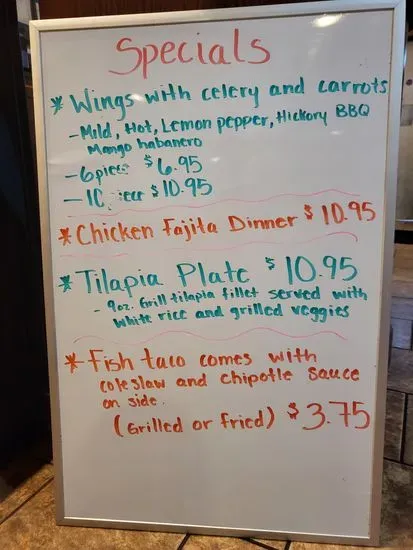 Specials
* Wings with celery and carrots
- Mild, Hot, Lemon pepper, Hickory BBQ
Mango habanero
- 6 piece $6.95
- $10.95
* Chicken Fajita Dinner $10.95
* Tilapia Plate $10.95
- 9oz. Grill tilapia fillet served with
white rice and grilled veggies
* Fish taco comes with
coleslaw and chipotle sauce
on side.
(Grilled or fried) $3.75